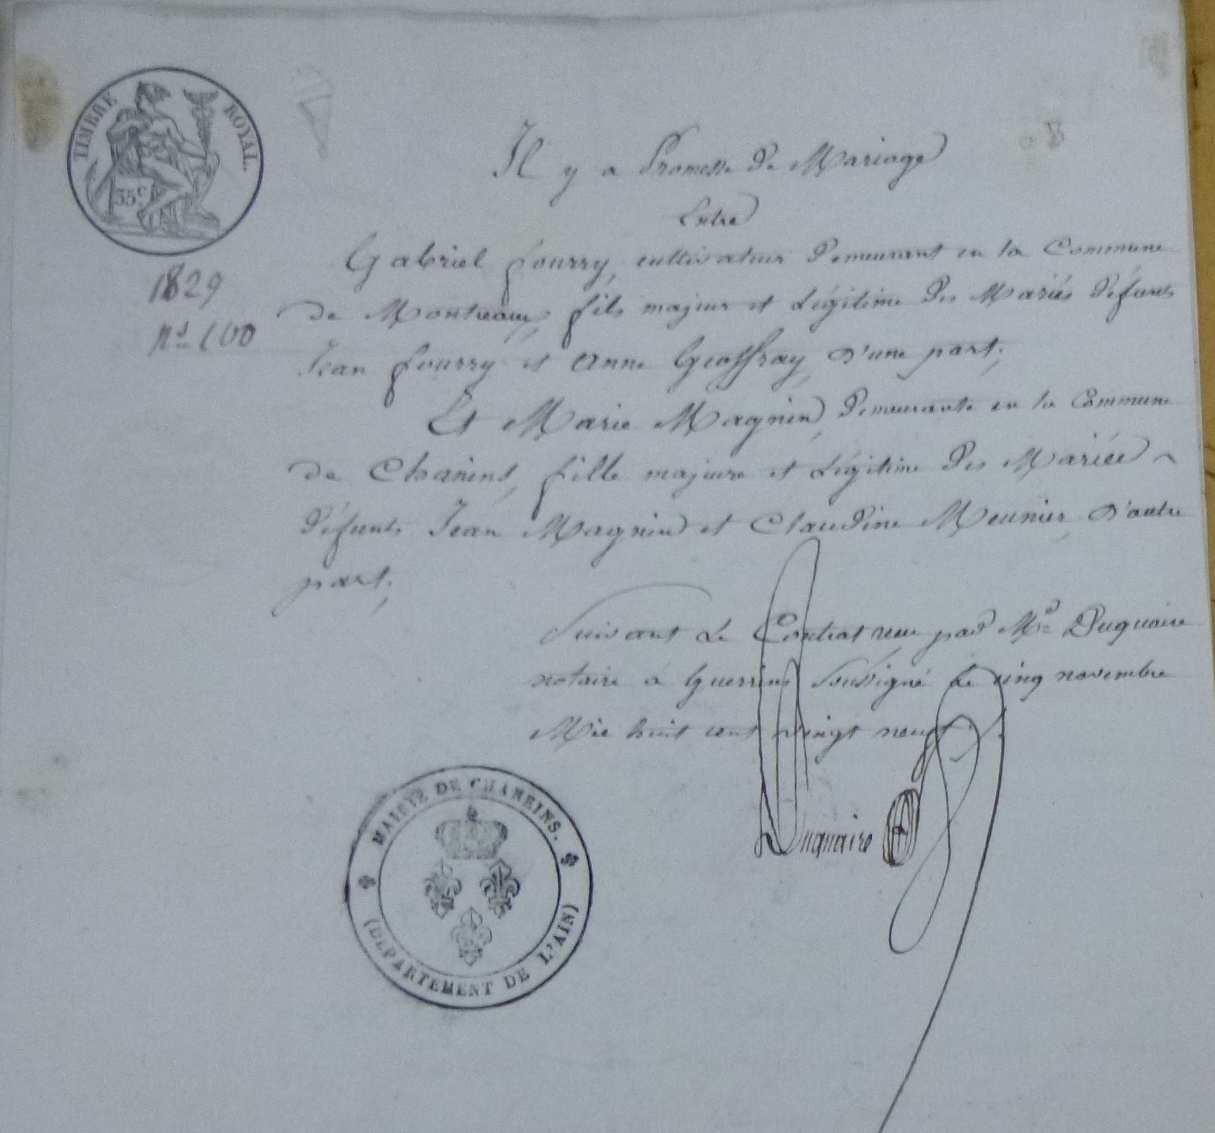 TIMBRE ROYAL.
35 c.
1829
nd 100
Il y a Promesse de Mariage
Entre
Gabriel fourry, cultivateur demeurant en la Commune
de Montceaux, fils majeur et Légitime des Mariés défunts
Jean fourry et Anne Geoffray, d'une part;
Et Marie Magnin, demeurante en la Commune
de Chaneins, fille majeure et Légitime des Mariés
défunts Jean Magnin et Claudine Meunier, d'autre
part;
Suivant le Contrat reçu par Me Duquaire
notaire à Guerrins soussigné le cinq novembre
Mil huit cent vingt neuf.
Duquaire
MAIRIE DE CHANEINS.
(DEPARTEMENT DE L'AIN)